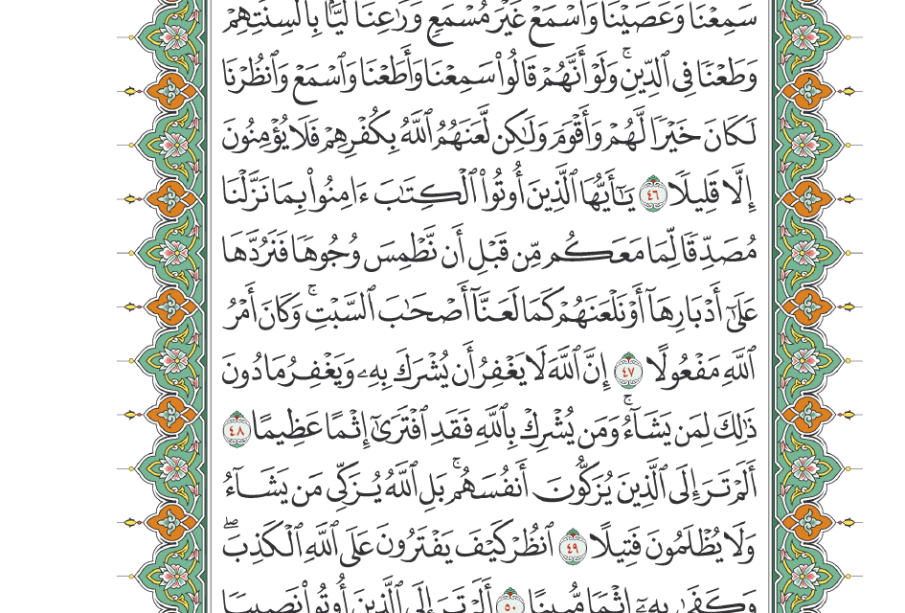 سَمِعْنَا وَعَصَيْنَا وَٱسْمَعْ غَيْرَ مُسْمَعٍ وَرَٰعِنَا لَيًّۢا بِأَلْسِنَتِهِمْ
وَطَعْنًا فِى ٱلدِّينِ ۚ وَلَوْ أَنَّهُمْ قَالُوا۟ سَمِعْنَا وَأَطَعْنَا وَٱسْمَعْ وَٱنظُرْنَا
لَكَانَ خَيْرًا لَّهُمْ وَأَقْوَمَ وَلَٰكِن لَّعَنَهُمُ ٱللَّهُ بِكُفْرِهِمْ فَلَا يُؤْمِنُونَ
إِلَّا قَلِيلًا ٤٦ يَٰٓأَيُّهَا ٱلَّذِينَ أُوتُوا۟ ٱلْكِتَٰبَ ءَامِنُوا۟ بِمَا نَزَّلْنَا
مُصَدِّقًا لِّمَا مَعَكُم مِّن قَبْلِ أَن نَّطْمِسَ وُجُوهًا فَنَرُدَّهَا
عَلَىٰٓ أَدْبَارِهَآ أَوْ نَلْعَنَهُمْ كَمَا لَعَنَّآ أَصْحَٰبَ ٱلسَّبْتِ ۚ وَكَانَ أَمْرُ
ٱللَّهِ مَفْعُولًا ٤٧ إِنَّ ٱللَّهَ لَا يَغْفِرُ أَن يُشْرَكَ بِهِۦ وَيَغْفِرُ مَا دُونَ
ذَٰلِكَ لِمَن يَشَآءُ ۚ وَمَن يُشْرِكْ بِٱللَّهِ فَقَدِ ٱفْتَرَىٰٓ إِثْمًا عَظِيمًا ٤٨
أَلَمْ تَرَ إِلَى ٱلَّذِينَ يُزَكُّونَ أَنفُسَهُم ۚ بَلِ ٱللَّهُ يُزَكِّى مَن يَشَآءُ
وَلَا يُظْلَمُونَ فَتِيلًا ٤٩ ٱنظُرْ كَيْفَ يَفْتَرُونَ عَلَى ٱللَّهِ ٱلْكَذِبَ ۖ
وَكَفَىٰ بِهِۦٓ إِثْمًا مُّبِينًا ٥٠ أَلَمْ تَرَ إِلَى ٱلَّذِينَ أُوتُوا۟ نَصِيبًا